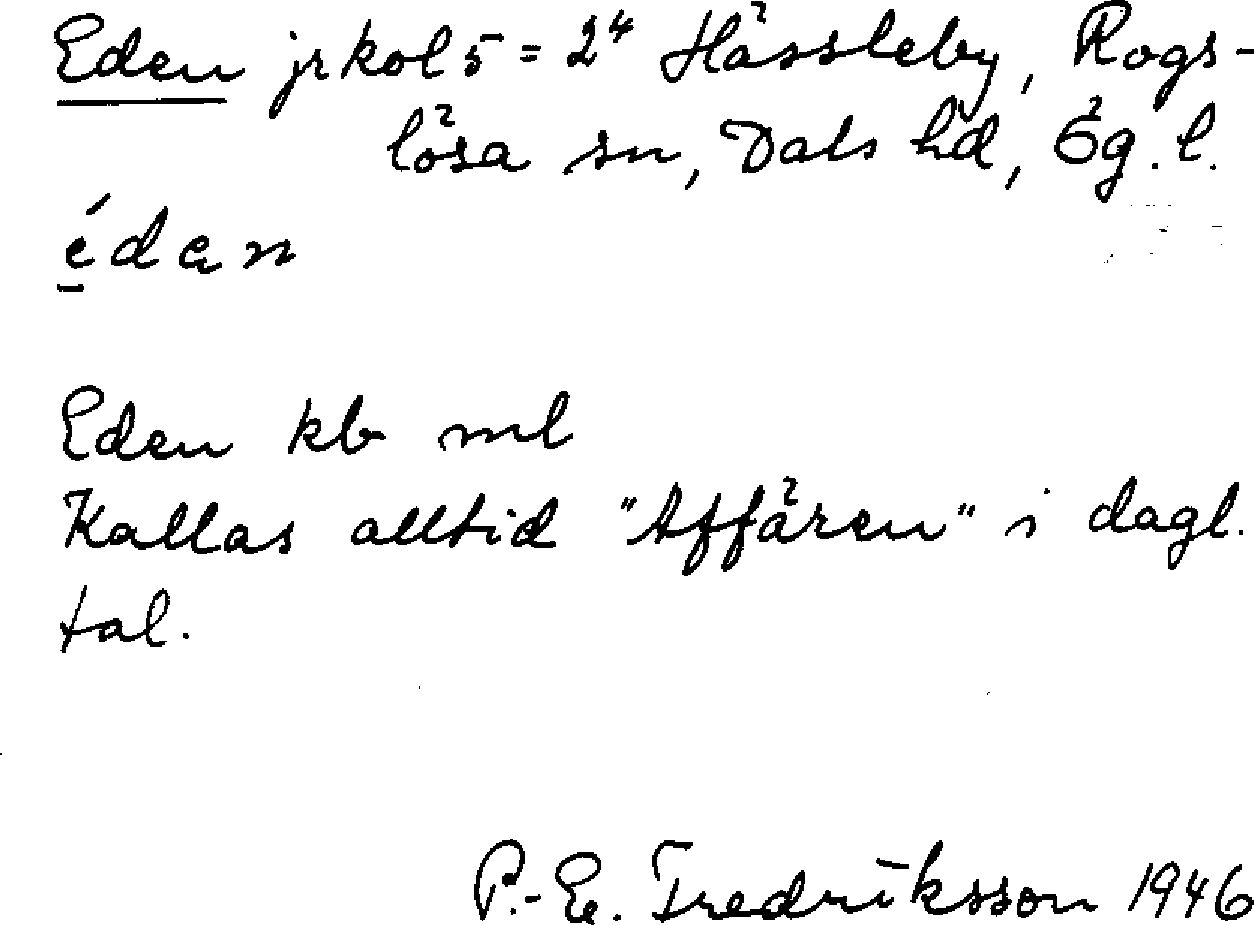 Eden jrkol 5 = 2⁴ Hässleby, Rogs-
lösa sn, Dals hd, Ög. l.
édən
Eden kb ml
Kallas alltid "Affären" i dagl.
tal.
P.-E. Fredriksson 1946